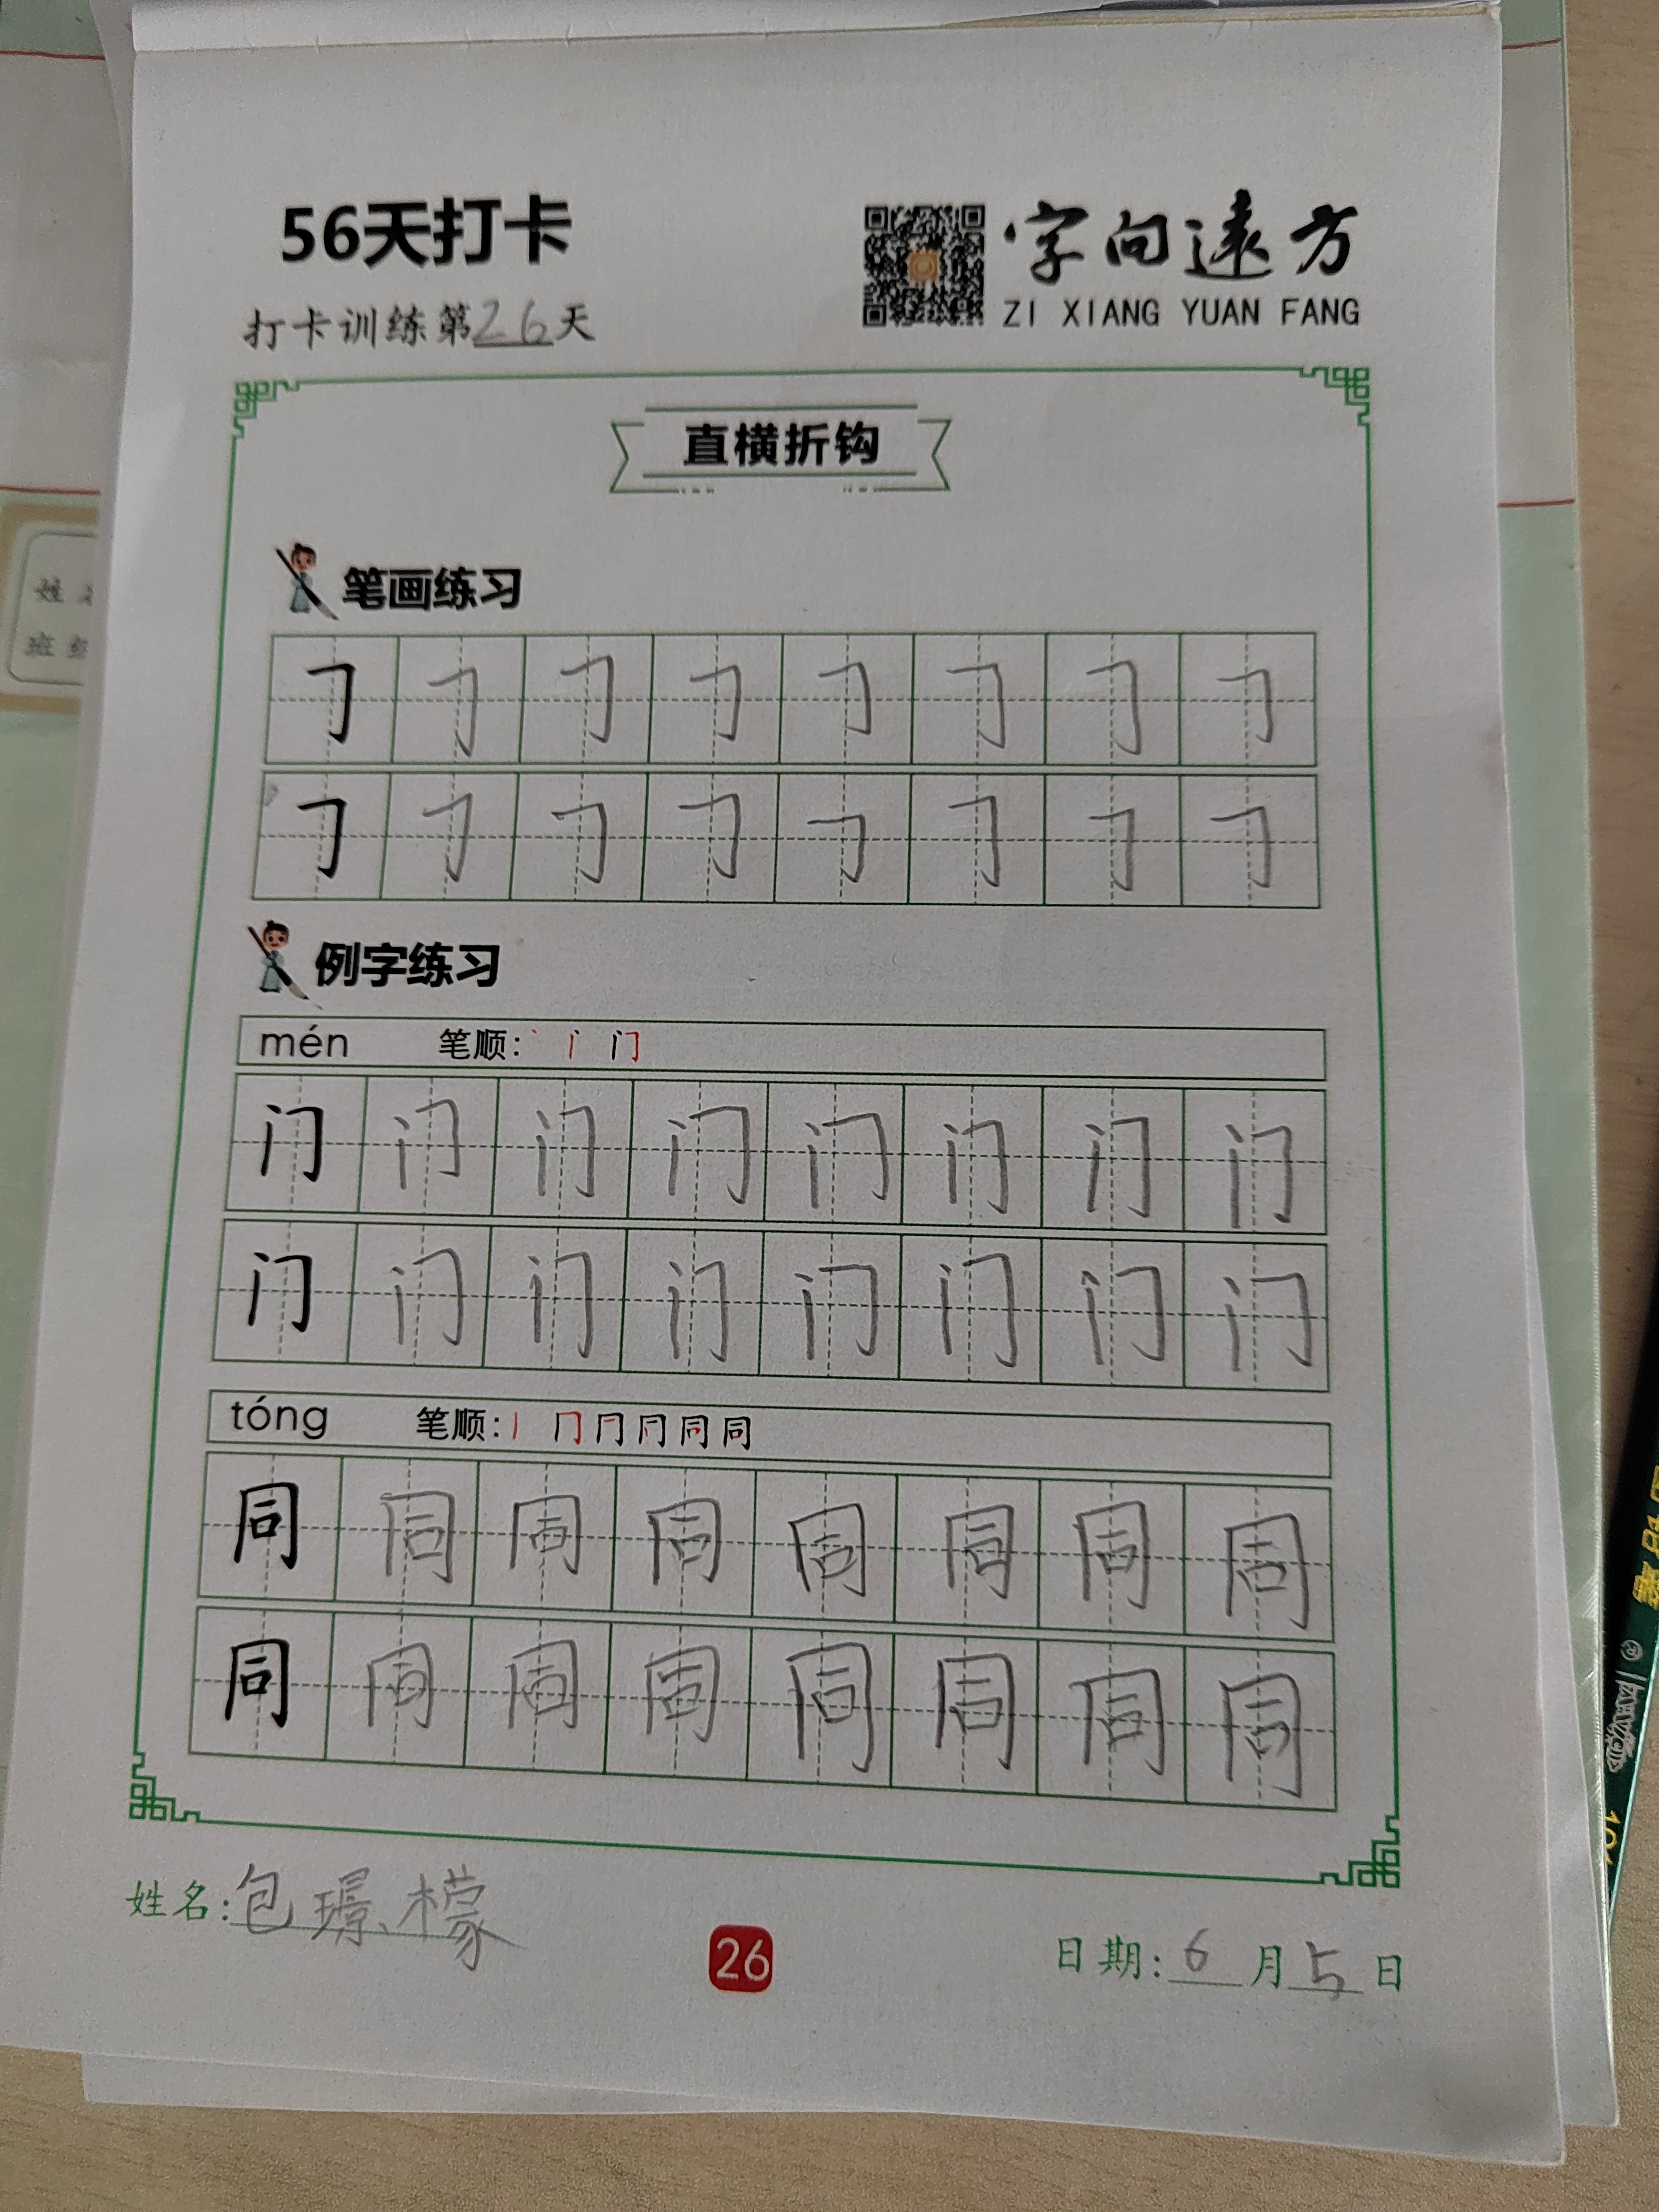 56天打卡
字向远方
ZI XIANG YUAN FANG
打卡训练第26天
直横折钩
笔画练习
㇆ ㇆ ㇆ ㇆ ㇆ ㇆ ㇆ ㇆
㇆ ㇆ ㇆ ㇆ ㇆ ㇆ ㇆ ㇆
例字练习
mén 笔顺: 丶 门
门 门 门 门 门 门 门 门
门 门 门 门 门 门 门 门
tóng 笔顺: 丨 冂 同 同
同 同 同 同 同 同 同 同
同 同 同 同 同 同 同 同
姓名:包璟檬
26
日期:6月5日
姓
班